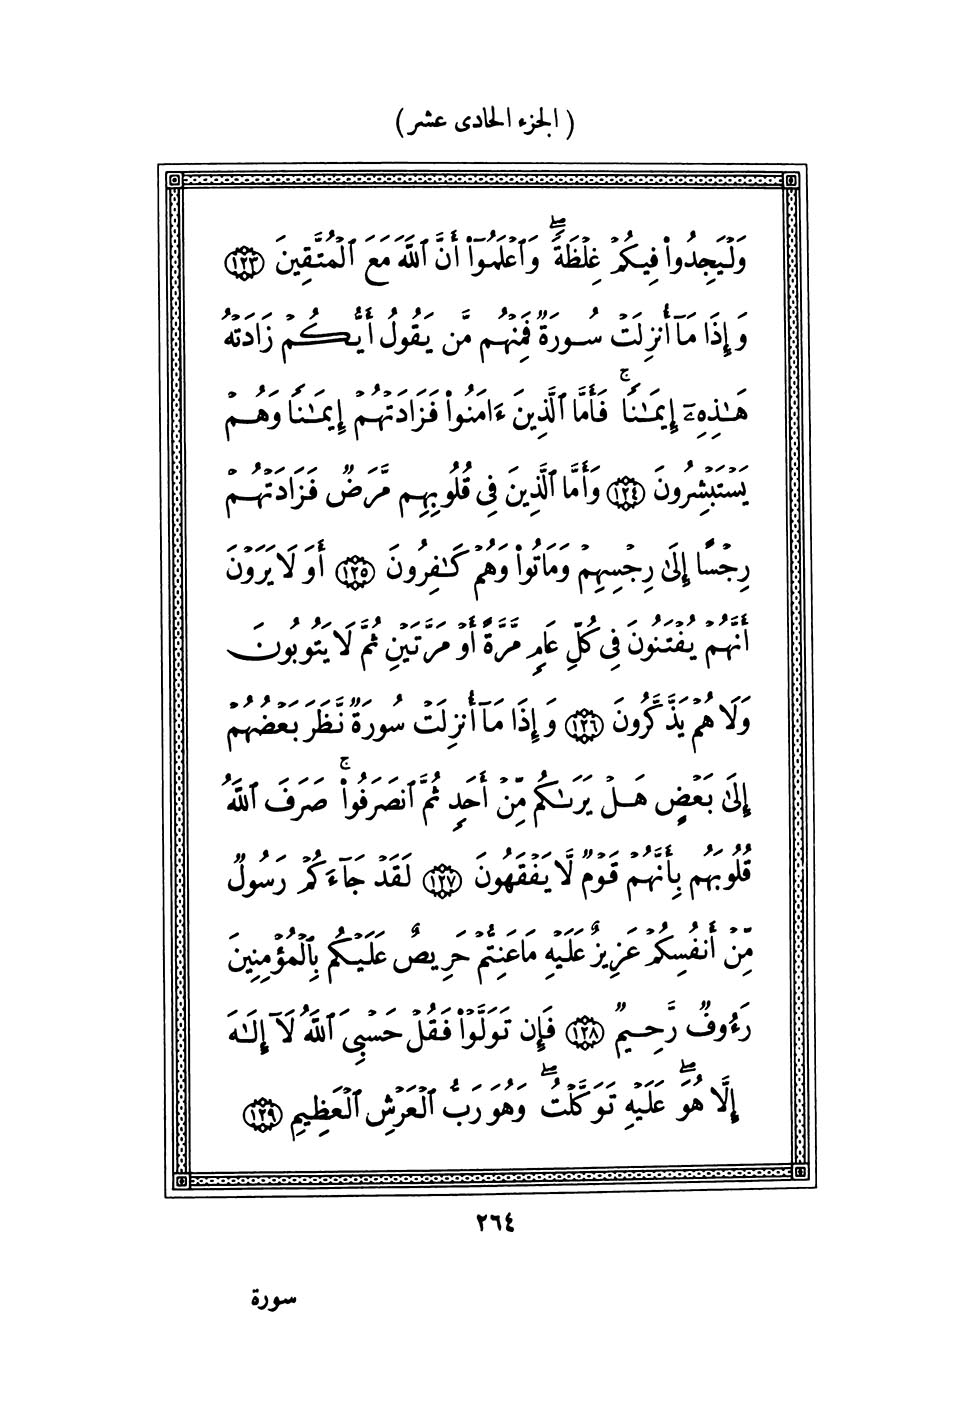 (الجزء الحادى عشر)
وَلْيَجِدُوا۟ فِيكُمْ غِلْظَةً ۚ وَٱعْلَمُوٓا۟ أَنَّ ٱللَّهَ مَعَ ٱلْمُتَّقِينَ ١٢٣
وَإِذَا مَآ أُنزِلَتْ سُورَةٌ فَمِنْهُم مَّن يَقُولُ أَيُّكُمْ زَادَتْهُ
هَـٰذِهِۦٓ إِيمَـٰنًا ۚ فَأَمَّا ٱلَّذِينَ ءَامَنُوا۟ فَزَادَتْهُمْ إِيمَـٰنًا وَهُمْ
يَسْتَبْشِرُونَ ١٢٤ وَأَمَّا ٱلَّذِينَ فِى قُلُوبِهِم مَّرَضٌ فَزَادَتْهُمْ
رِجْسًا إِلَىٰ رِجْسِهِمْ وَمَاتُوا۟ وَهُمْ كَـٰفِرُونَ ١٢٥ أَوَلَا يَرَوْنَ
أَنَّهُمْ يُفْتَنُونَ فِى كُلِّ عَامٍ مَّرَّةً أَوْ مَرَّتَيْنِ ثُمَّ لَا يَتُوبُونَ
وَلَا هُمْ يَذَّكَّرُونَ ١٢٦ وَإِذَا مَآ أُنزِلَتْ سُورَةٌ نَّظَرَ بَعْضُهُمْ
إِلَىٰ بَعْضٍ هَلْ يَرَىٰكُم مِّنْ أَحَدٍ ثُمَّ ٱنصَرَفُوا۟ ۚ صَرَفَ ٱللَّهُ
قُلُوبَهُم بِأَنَّهُمْ قَوْمٌ لَّا يَفْقَهُونَ ١٢٧ لَقَدْ جَآءَكُمْ رَسُولٌ
مِّنْ أَنفُسِكُمْ عَزِيزٌ عَلَيْهِ مَا عَنِتُّمْ حَرِيصٌ عَلَيْكُم بِٱلْمُؤْمِنِينَ
رَءُوفٌ رَّحِيمٌ ١٢٨ فَإِن تَوَلَّوْا۟ فَقُلْ حَسْبِىَ ٱللَّهُ لَآ إِلَـٰهَ
إِلَّا هُوَ ۖ عَلَيْهِ تَوَكَّلْتُ ۖ وَهُوَ رَبُّ ٱلْعَرْشِ ٱلْعَظِيمِ ١٢٩
٢٦٤
سورة